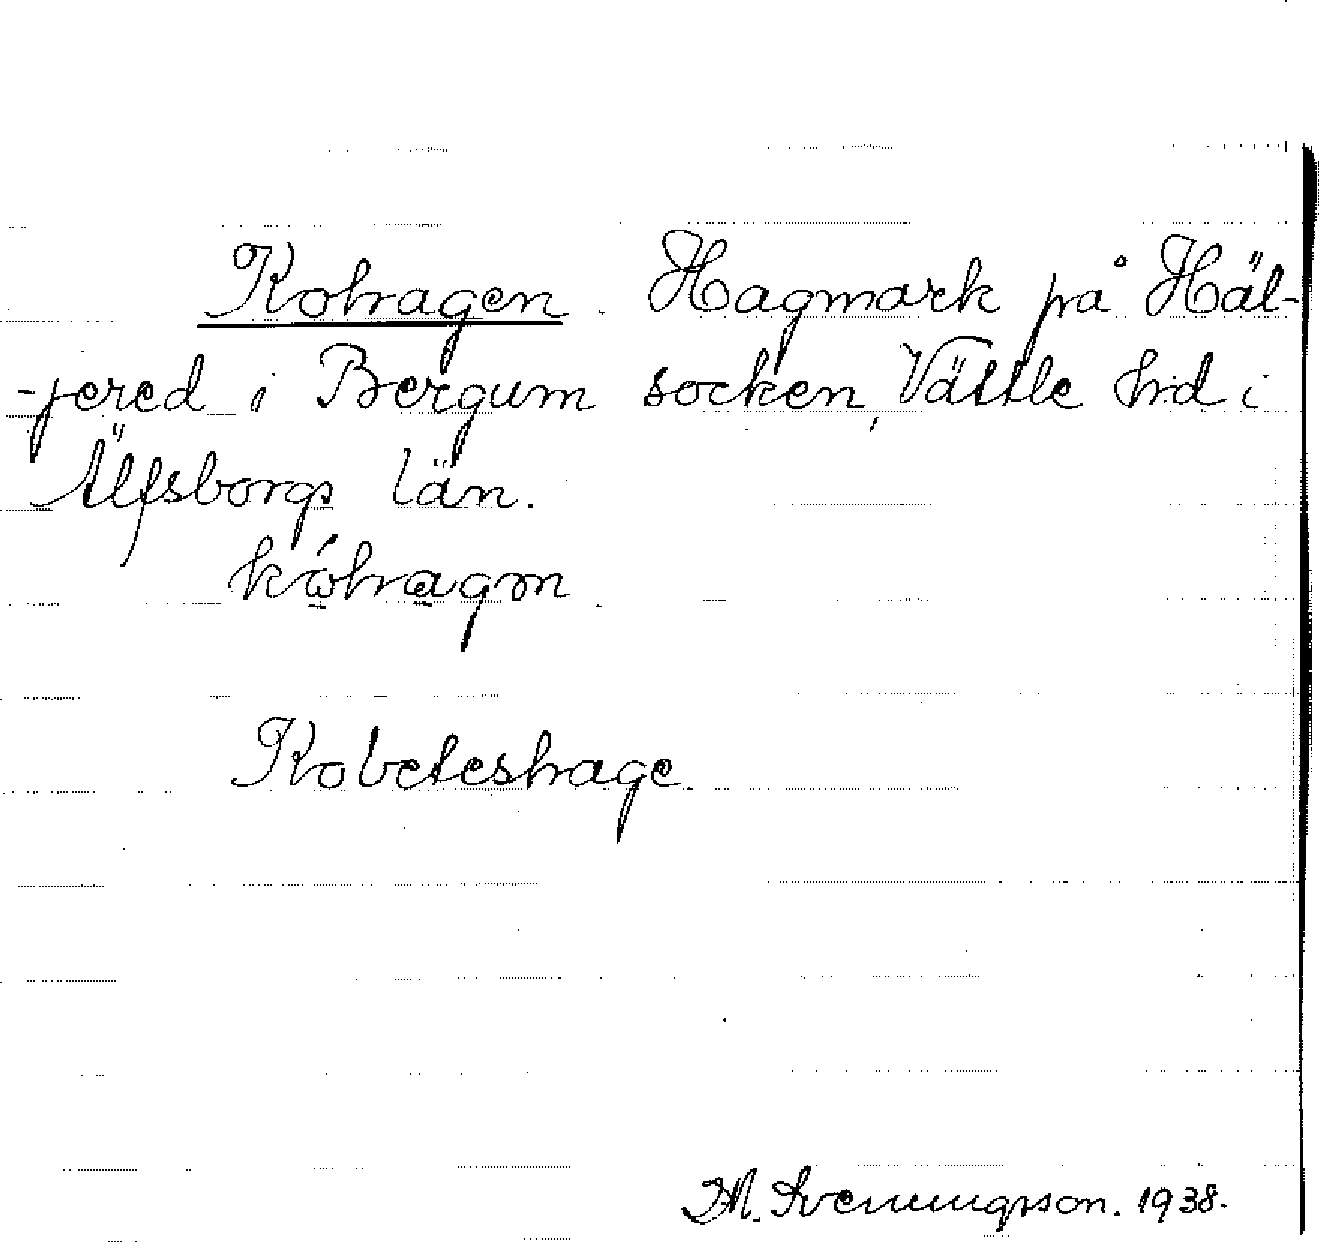 Kohagen. Hagmark på Häl-
-jered i Bergum socken, Vättle hd i
Älfsborgs län.
Kobeteshage.
M. Svenungsson. 1938.